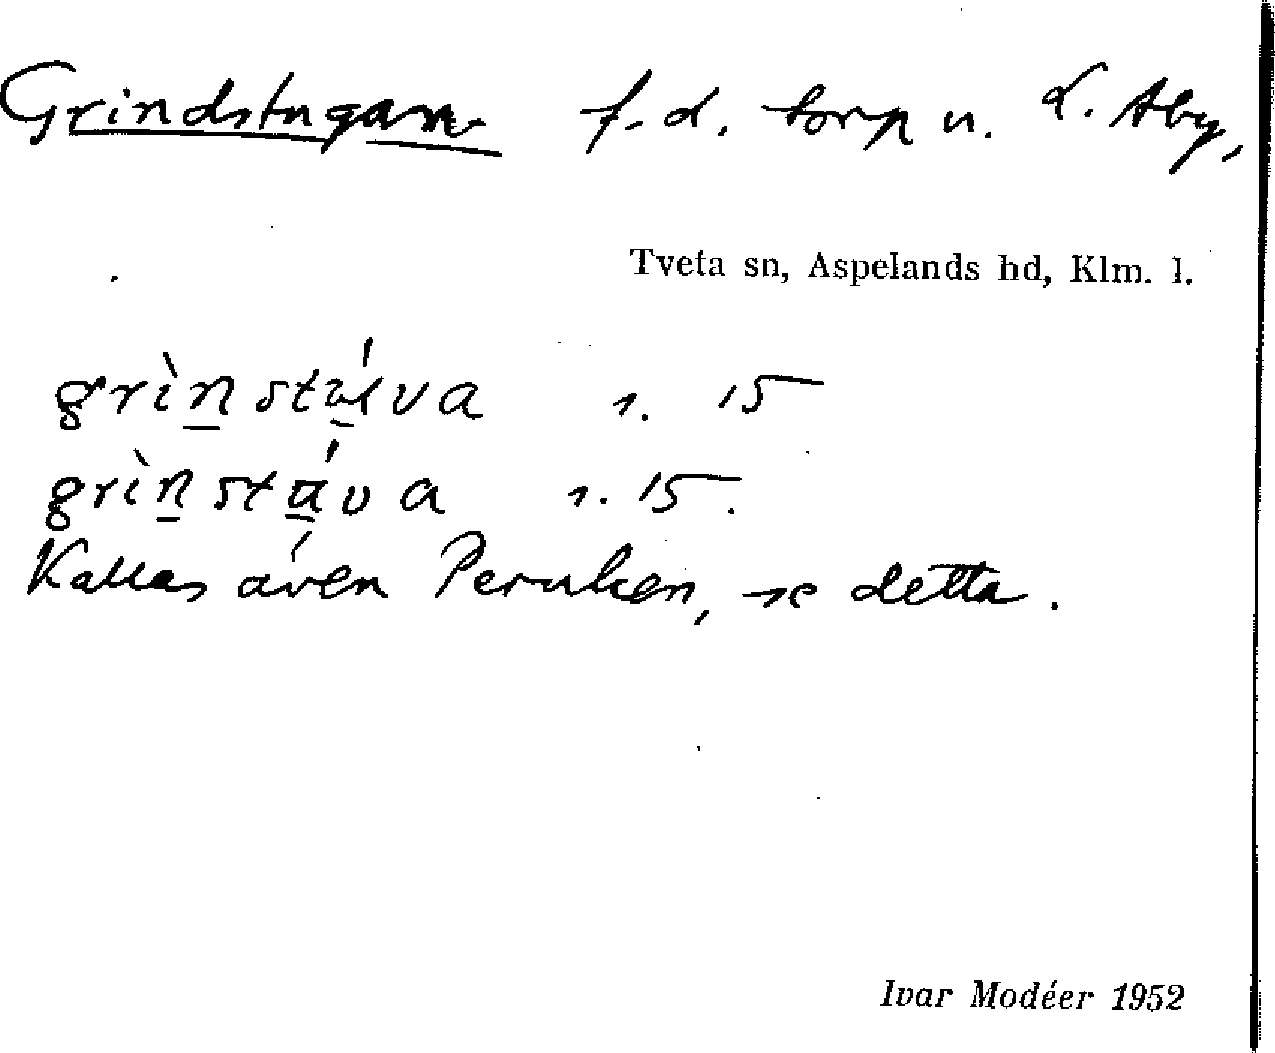 Grindstugan f.d. torp u. L. Åby,
Tveta sn, Aspelands hd, Klm. l.
grìnstúva s. 15
grìnstáva s. 15.
Kallas även Peruken, se detta.
Ivar Modéer 1952